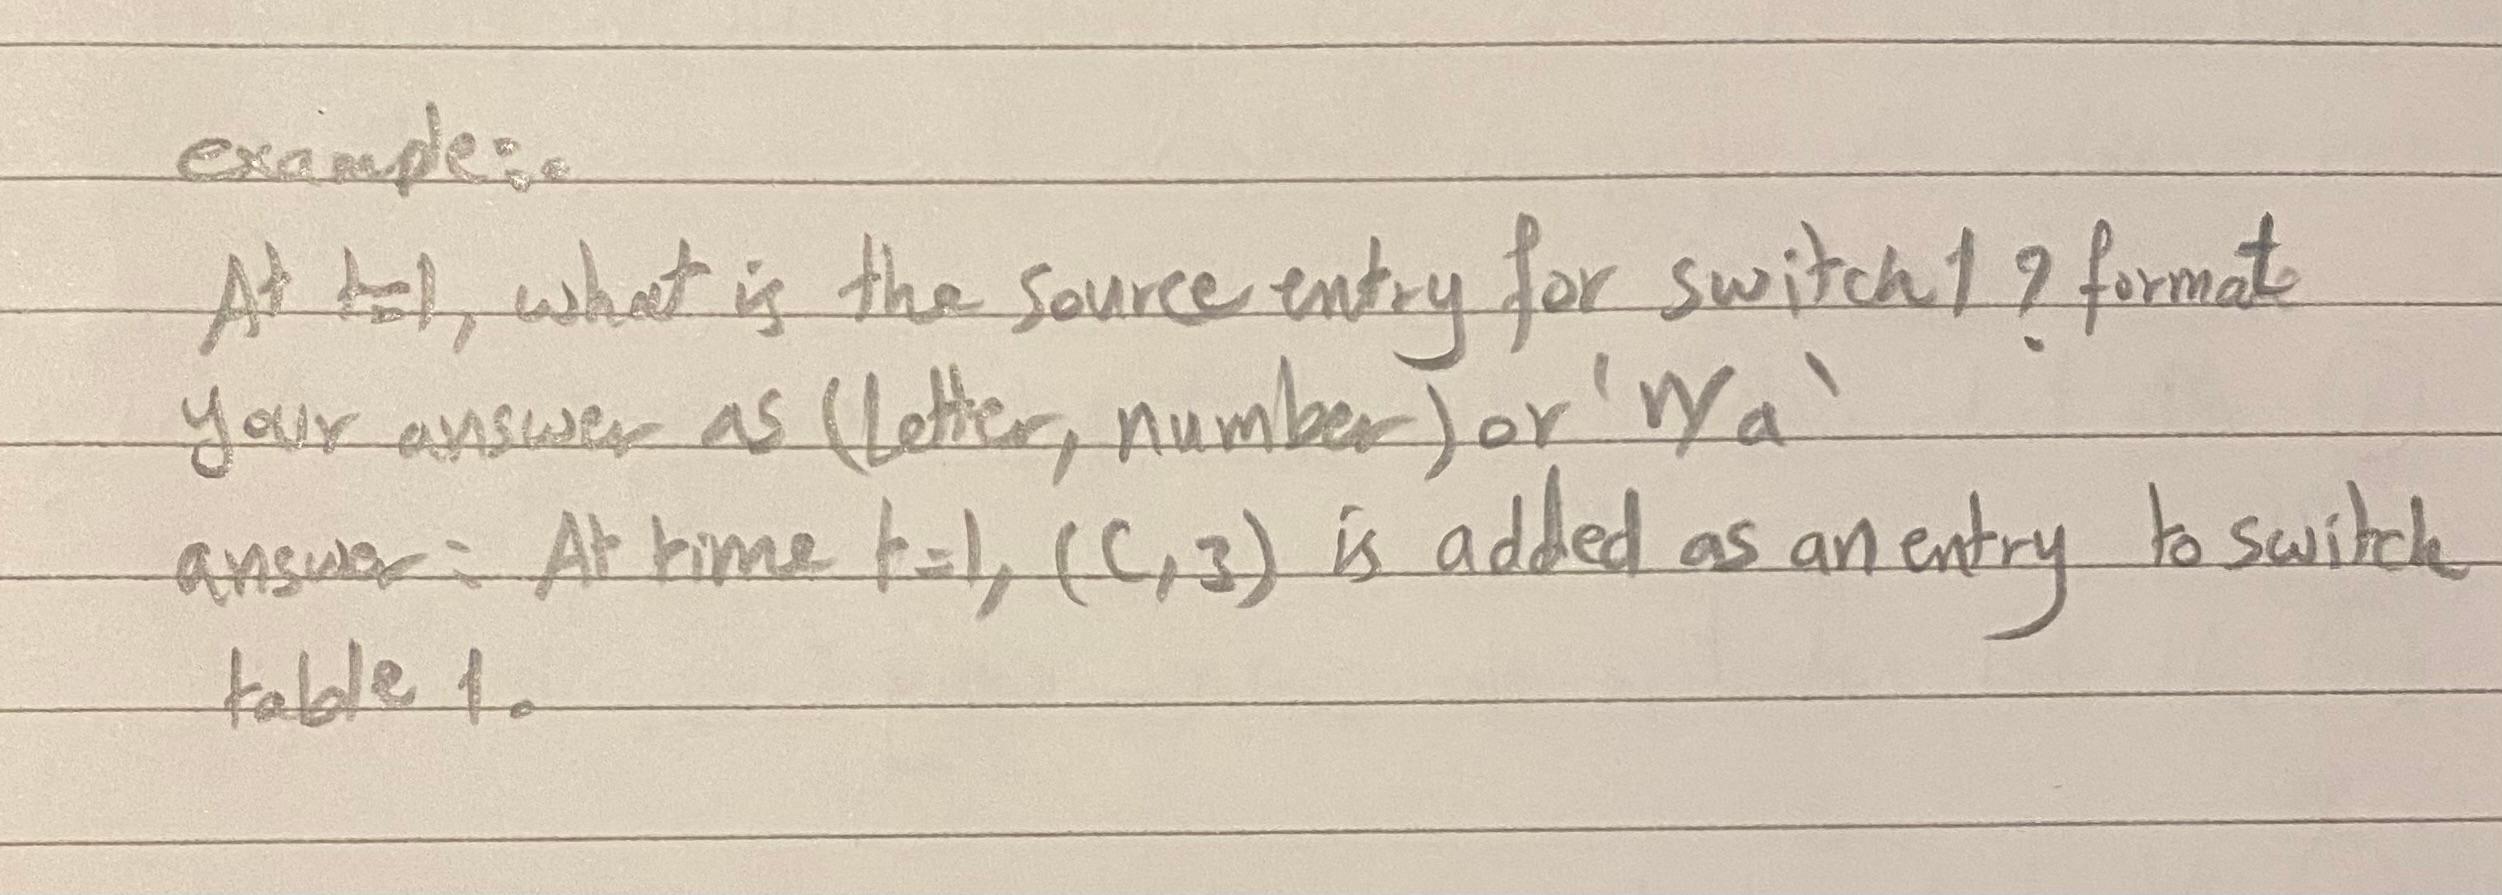 example:.
At t=1, what is the source entry for switch 1? format
your answer as (letter, number) or 'n/a'
answer: At time t=1, (C,3) is added as an entry to switch
table 1.